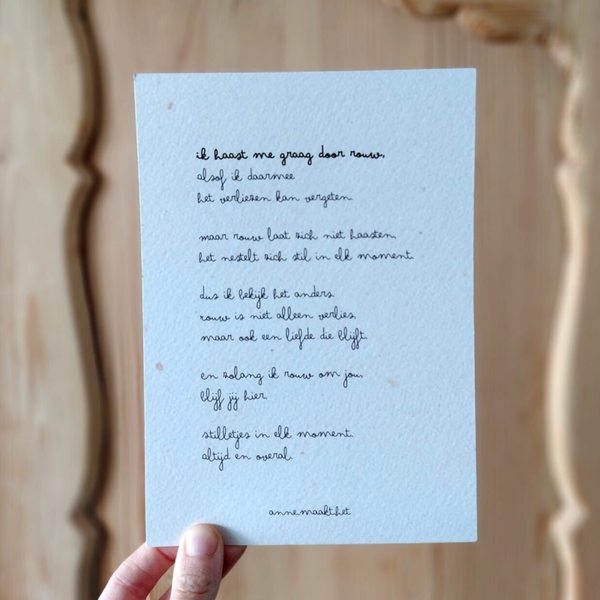 ik haast me graag door rouw,
alsof ik daarmee
het verliezen kan vergeten.
maar rouw laat zich niet haasten.
het nestelt zich stil in elk moment.
dus ik bekijk het anders.
rouw is niet alleen verlies,
maar ook een liefde die blijft.
en zolang ik rouw om jou,
blijf jij hier.
stilletjes in elk moment.
altijd en overal.
annemaakthet